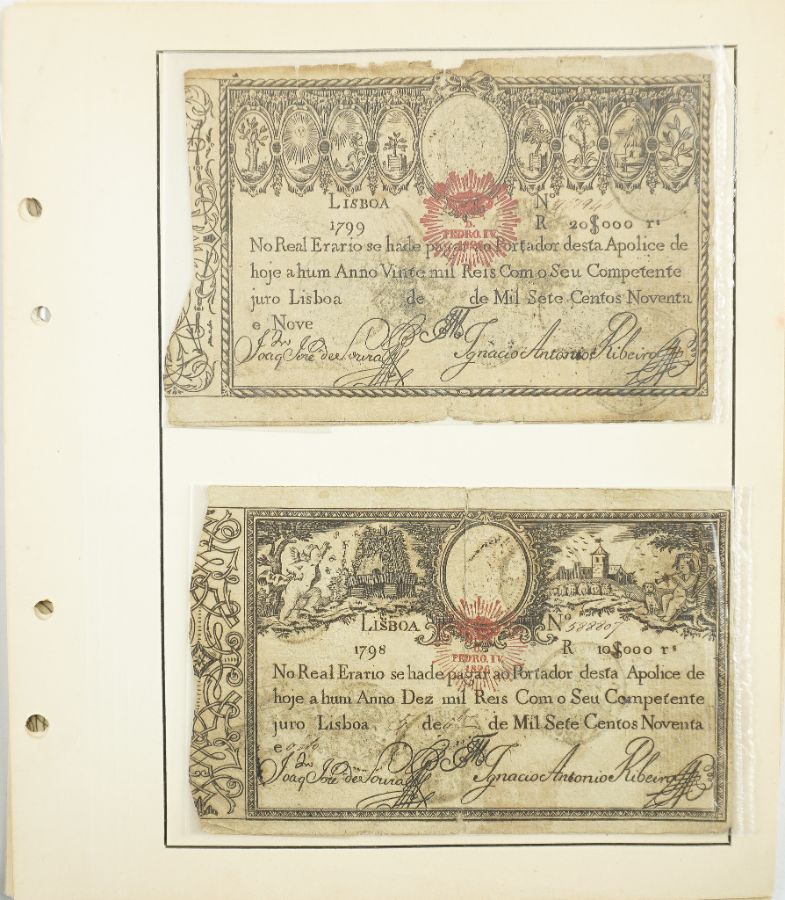 LISBOA Nº
1799 R 20$000 rˢ
D.
PEDRO. IV.
1826
No Real Erario se hade pagar ao Portador desta Apolice de
hoje a hum Anno Vinte mil Reis Com o Seu Competente
juro Lisboa de de Mil Sete Centos Noventa
e Nove
Joaqᵐ José de Souza Ignacio Antonio Ribeiro
LISBOA Nº 588807
1798 R 10$000 rˢ
PEDRO. IV.
1826
No Real Erario se hade pagar ao Portador desta Apolice de
hoje a hum Anno Dez mil Reis Com o Seu Competente
juro Lisboa de de Mil Sete Centos Noventa
e oito
Joaqᵐ José de Souza Ignacio Antonio Ribeiro